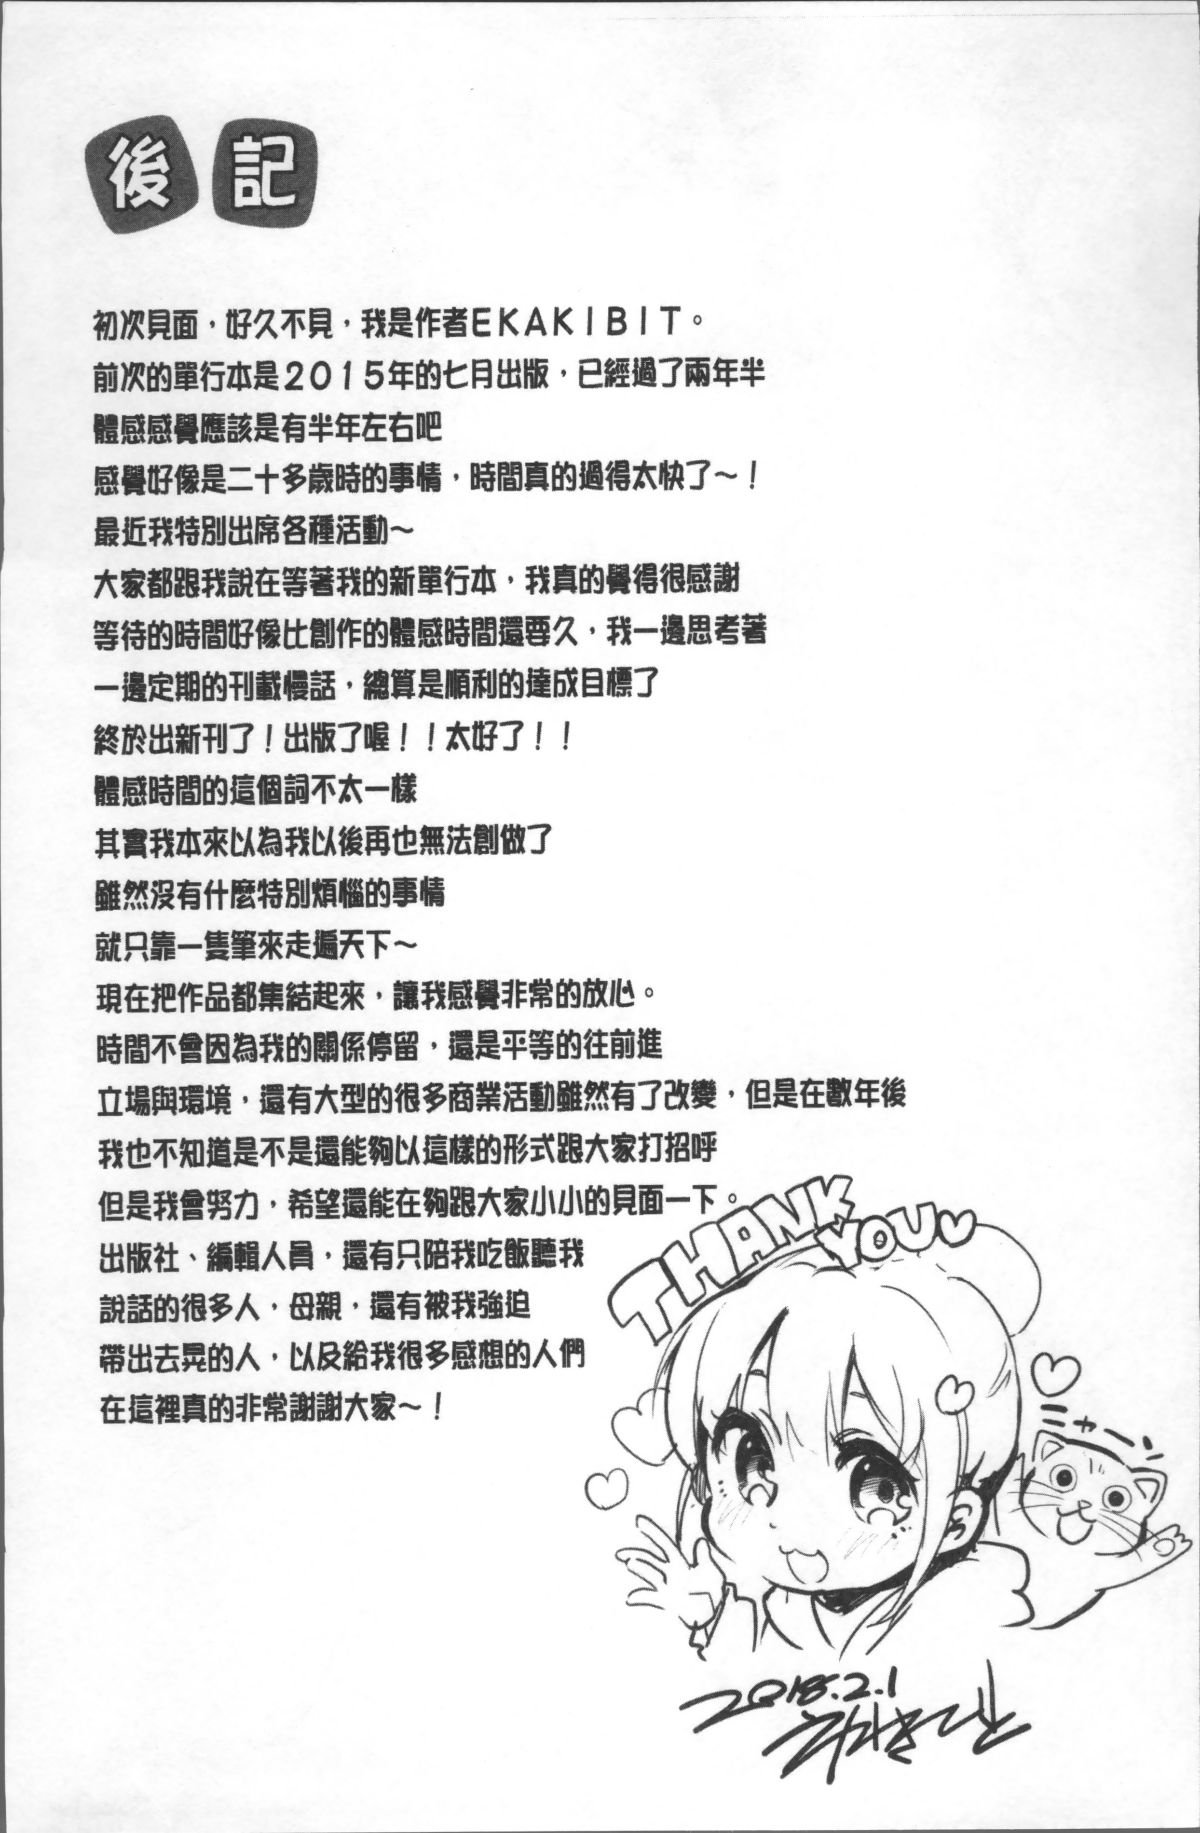 後記
初次見面，好久不見，我是作者EKAKIBIT。
前次的單行本是2015年的七月出版，已經過了兩年半
體感感覺應該是有半年左右吧
感覺好像是二十多歲時的事情，時間真的過得太快了～！
最近我特別出席各種活動～
大家都跟我說在等著我的新單行本，我真的覺得很感謝
等待的時間好像比創作的體感時間還要久，我一邊思考著
一邊定期的刊載慢話，總算是順利的達成目標了
終於出新刊了！出版了喔！！太好了！！
體感時間的這個詞不太一樣
其實我本來以為我以後再也無法創做了
雖然沒有什麼特別煩惱的事情
就只靠一隻筆來走遍天下～
現在把作品都集結起來，讓我感覺非常的放心。
時間不會因為我的關係停留，還是平等的往前進
立場與環境，還有大型的很多商業活動雖然有了改變，但是在數年後
我也不知道是不是還能夠以這樣的形式跟大家打招呼
但是我會努力，希望還能在夠跟大家小小的見面一下。
出版社、編輯人員，還有只陪我吃飯聽我
說話的很多人，母親，還有被我強迫
帶出去晃的人，以及給我很多感想的人們
在這裡真的非常謝謝大家～！
THANK
YOU
ニャーン
2018.2.1